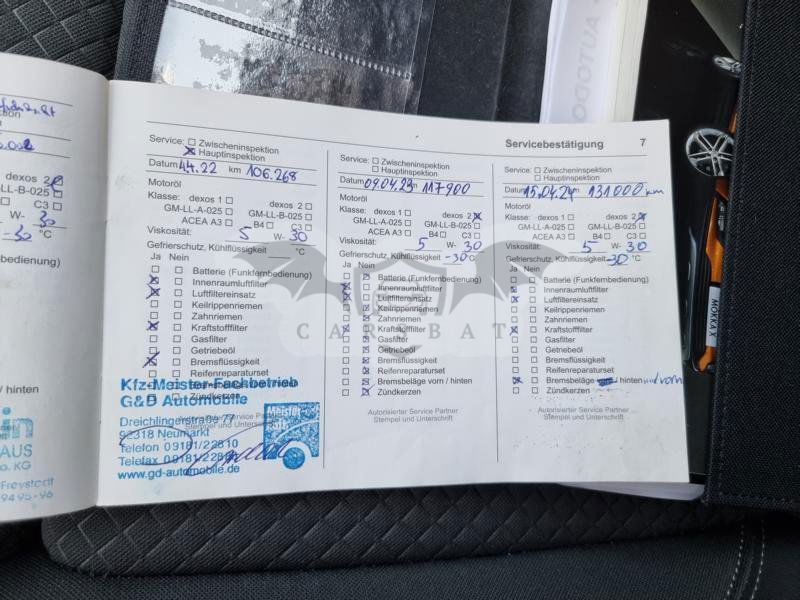 Servicebestätigung 7
Service: Zwischeninspektion
Hauptinspektion
Datum 4.4.22 km 106.268
Motoröl
Klasse: dexos 1 dexos 2
GM-LL-A-025 GM-LL-B-025
ACEA A3 B4 C3
Viskosität: 5 W- 30
Gefrierschutz, Kühlflüssigkeit °C
Ja Nein
Batterie (Funkfernbedienung)
Innenraumluftfilter
Luftfiltereinsatz
Keilrippenriemen
Zahnriemen
Kraftstofffilter
Gasfilter
Getriebeöl
Bremsflüssigkeit
Reifenreparaturset
Zündkerzen
Kfz-Meister-Fachbetrieb
G&D Automobile
Dreichlingerstraße 77
92318 Neumarkt
Telefon 09181/22810
Telefax 09181/22
www.gd-automobile.de
Meister
Service: Zwischeninspektion
Hauptinspektion
Datum 09.04.23 km 117900
Motoröl
Klasse: dexos 1 dexos 2
GM-LL-A-025 GM-LL-B-025
ACEA A3 B4 C3
Viskosität: 5 W- 30
Gefrierschutz, Kühlflüssigkeit -30°C
Ja Nein
Batterie (Funkfernbedienung)
Innenraumluftfilter
Luftfiltereinsatz
Keilrippenriemen
Zahnriemen
Kraftstofffilter
Gasfilter
Getriebeöl
Bremsflüssigkeit
Reifenreparaturset
Bremsbeläge vorn / hinten
Zündkerzen
Autorisierter Service Partner
Stempel und Unterschrift
Service: Zwischeninspektion
Hauptinspektion
Datum 15.04.24 km 131000 km
Motoröl
Klasse: dexos 1 dexos 2
GM-LL-A-025 GM-LL-B-025
ACEA A3 B4 C3
Viskosität: 5 W- 30
Gefrierschutz, Kühlflüssigkeit -30°C
Ja Nein
Batterie (Funkfernbedienung)
Innenraumluftfilter
Luftfiltereinsatz
Keilrippenriemen
Zahnriemen
Kraftstofffilter
Gasfilter
Getriebeöl
Bremsflüssigkeit
Reifenreparaturset
Bremsbeläge hinten und vorn
Zündkerzen
Autorisierter Service Partner
Stempel und Unterschrift
dexos 2
GM-LL-B-025
C3
W- 30
-30 °C
bedienung)
/ hinten
AUS
o. KG
Freystadt
94 95-96
CARSBAT
AUTODO
MOKKA X